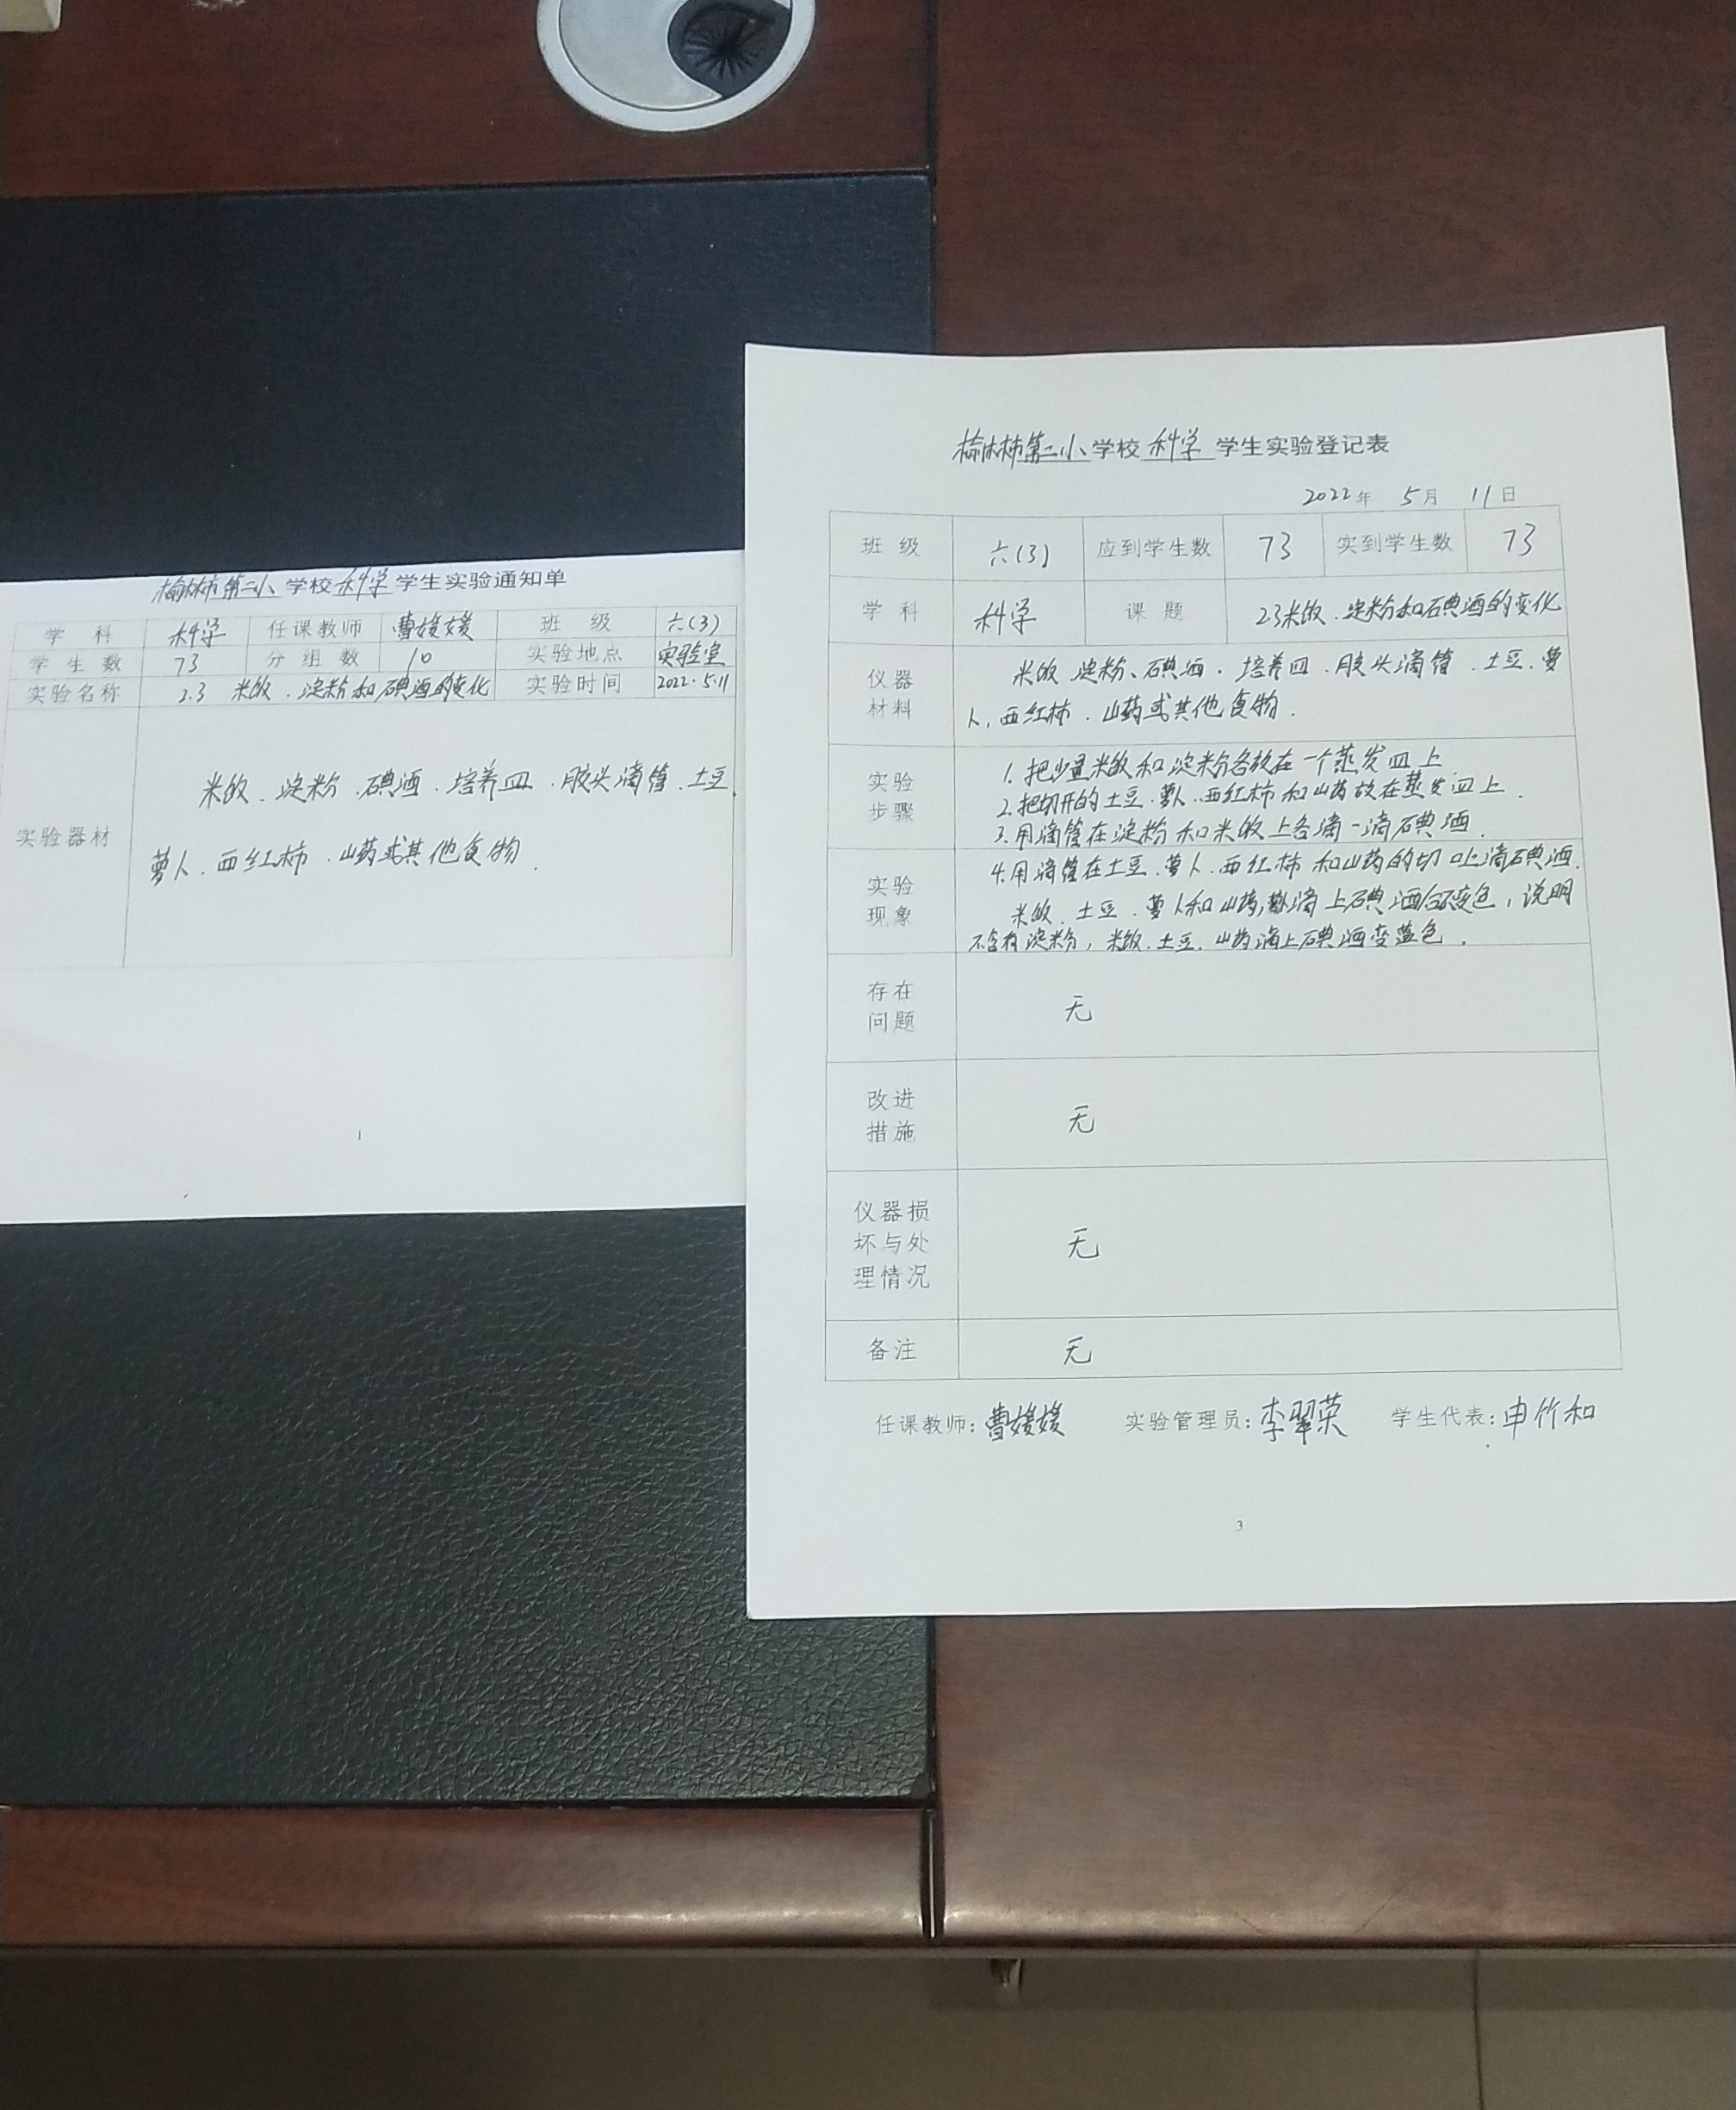 榆林市第二小学校科学学生实验通知单
学 科 科学 任课教师 曹媛媛 班 级 六(3)
学 生 数 73 分 组 数 10 实验地点 实验室
实验名称 2.3 米饭、淀粉和碘酒的变化 实验时间 2022.5.11
实验器材
米饭、淀粉、碘酒、培养皿、胶头滴管、土豆、
萝卜、西红柿、山药或其他食物.
1
榆林市第二小学校科学学生实验登记表
2022年 5月 11日
班 级 六(3) 应到学生数 73 实到学生数 73
学 科 科学 课 题 2.3米饭、淀粉和碘酒的变化
仪器
材料
米饭 淀粉、碘酒、培养皿、胶头滴管、土豆、萝
卜、西红柿、山药或其他食物.
实验
步骤
1.把少量米饭和淀粉各放在一个蒸发皿上
2.把切开的土豆、萝卜、西红柿和山药放在蒸发皿上.
3.用滴管在淀粉和米饭上各滴一滴碘酒.
实验
现象
4.用滴管在土豆、萝卜、西红柿和山药的切口上滴碘酒.
米饭、土豆、萝卜和山药,滴上碘酒不变色,说明
不含有淀粉,米饭、土豆、山药滴上碘酒变蓝色.
存在
问题
无
改进
措施
无
仪器损
坏与处
理情况
无
备注 无
任课教师:曹媛媛 实验管理员:李翠荣 学生代表:申竹和
3